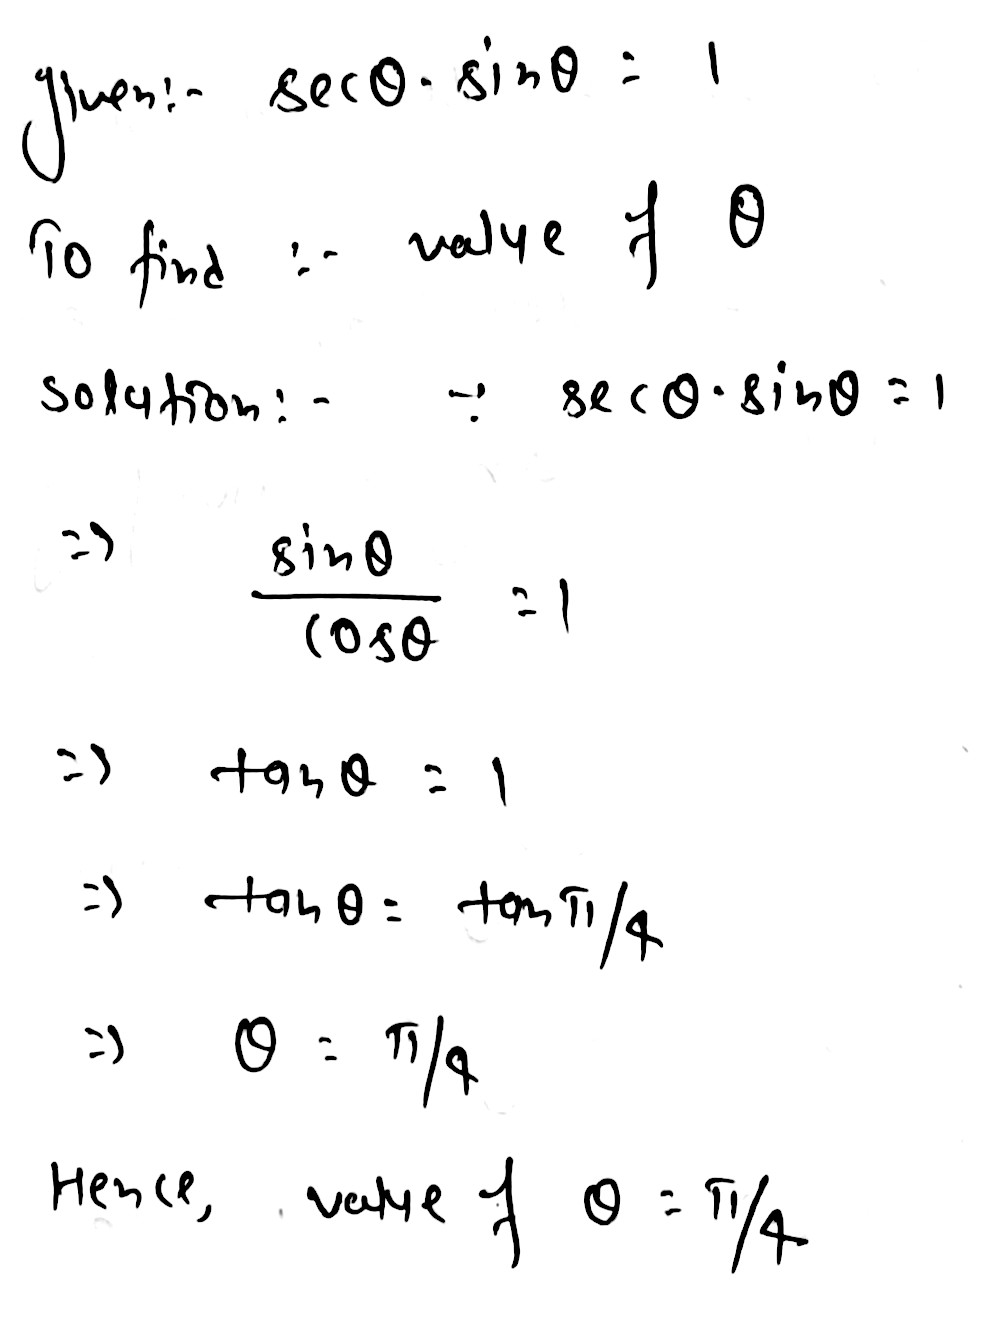 given:- secθ. sinθ = 1
To find :- value of θ
solution:- ∵ secθ.sinθ = 1
=> sinθ/cosθ = 1
=> tanθ = 1
=> tanθ = tan π/4
=> θ = π/4
Hence, value of θ = π/4